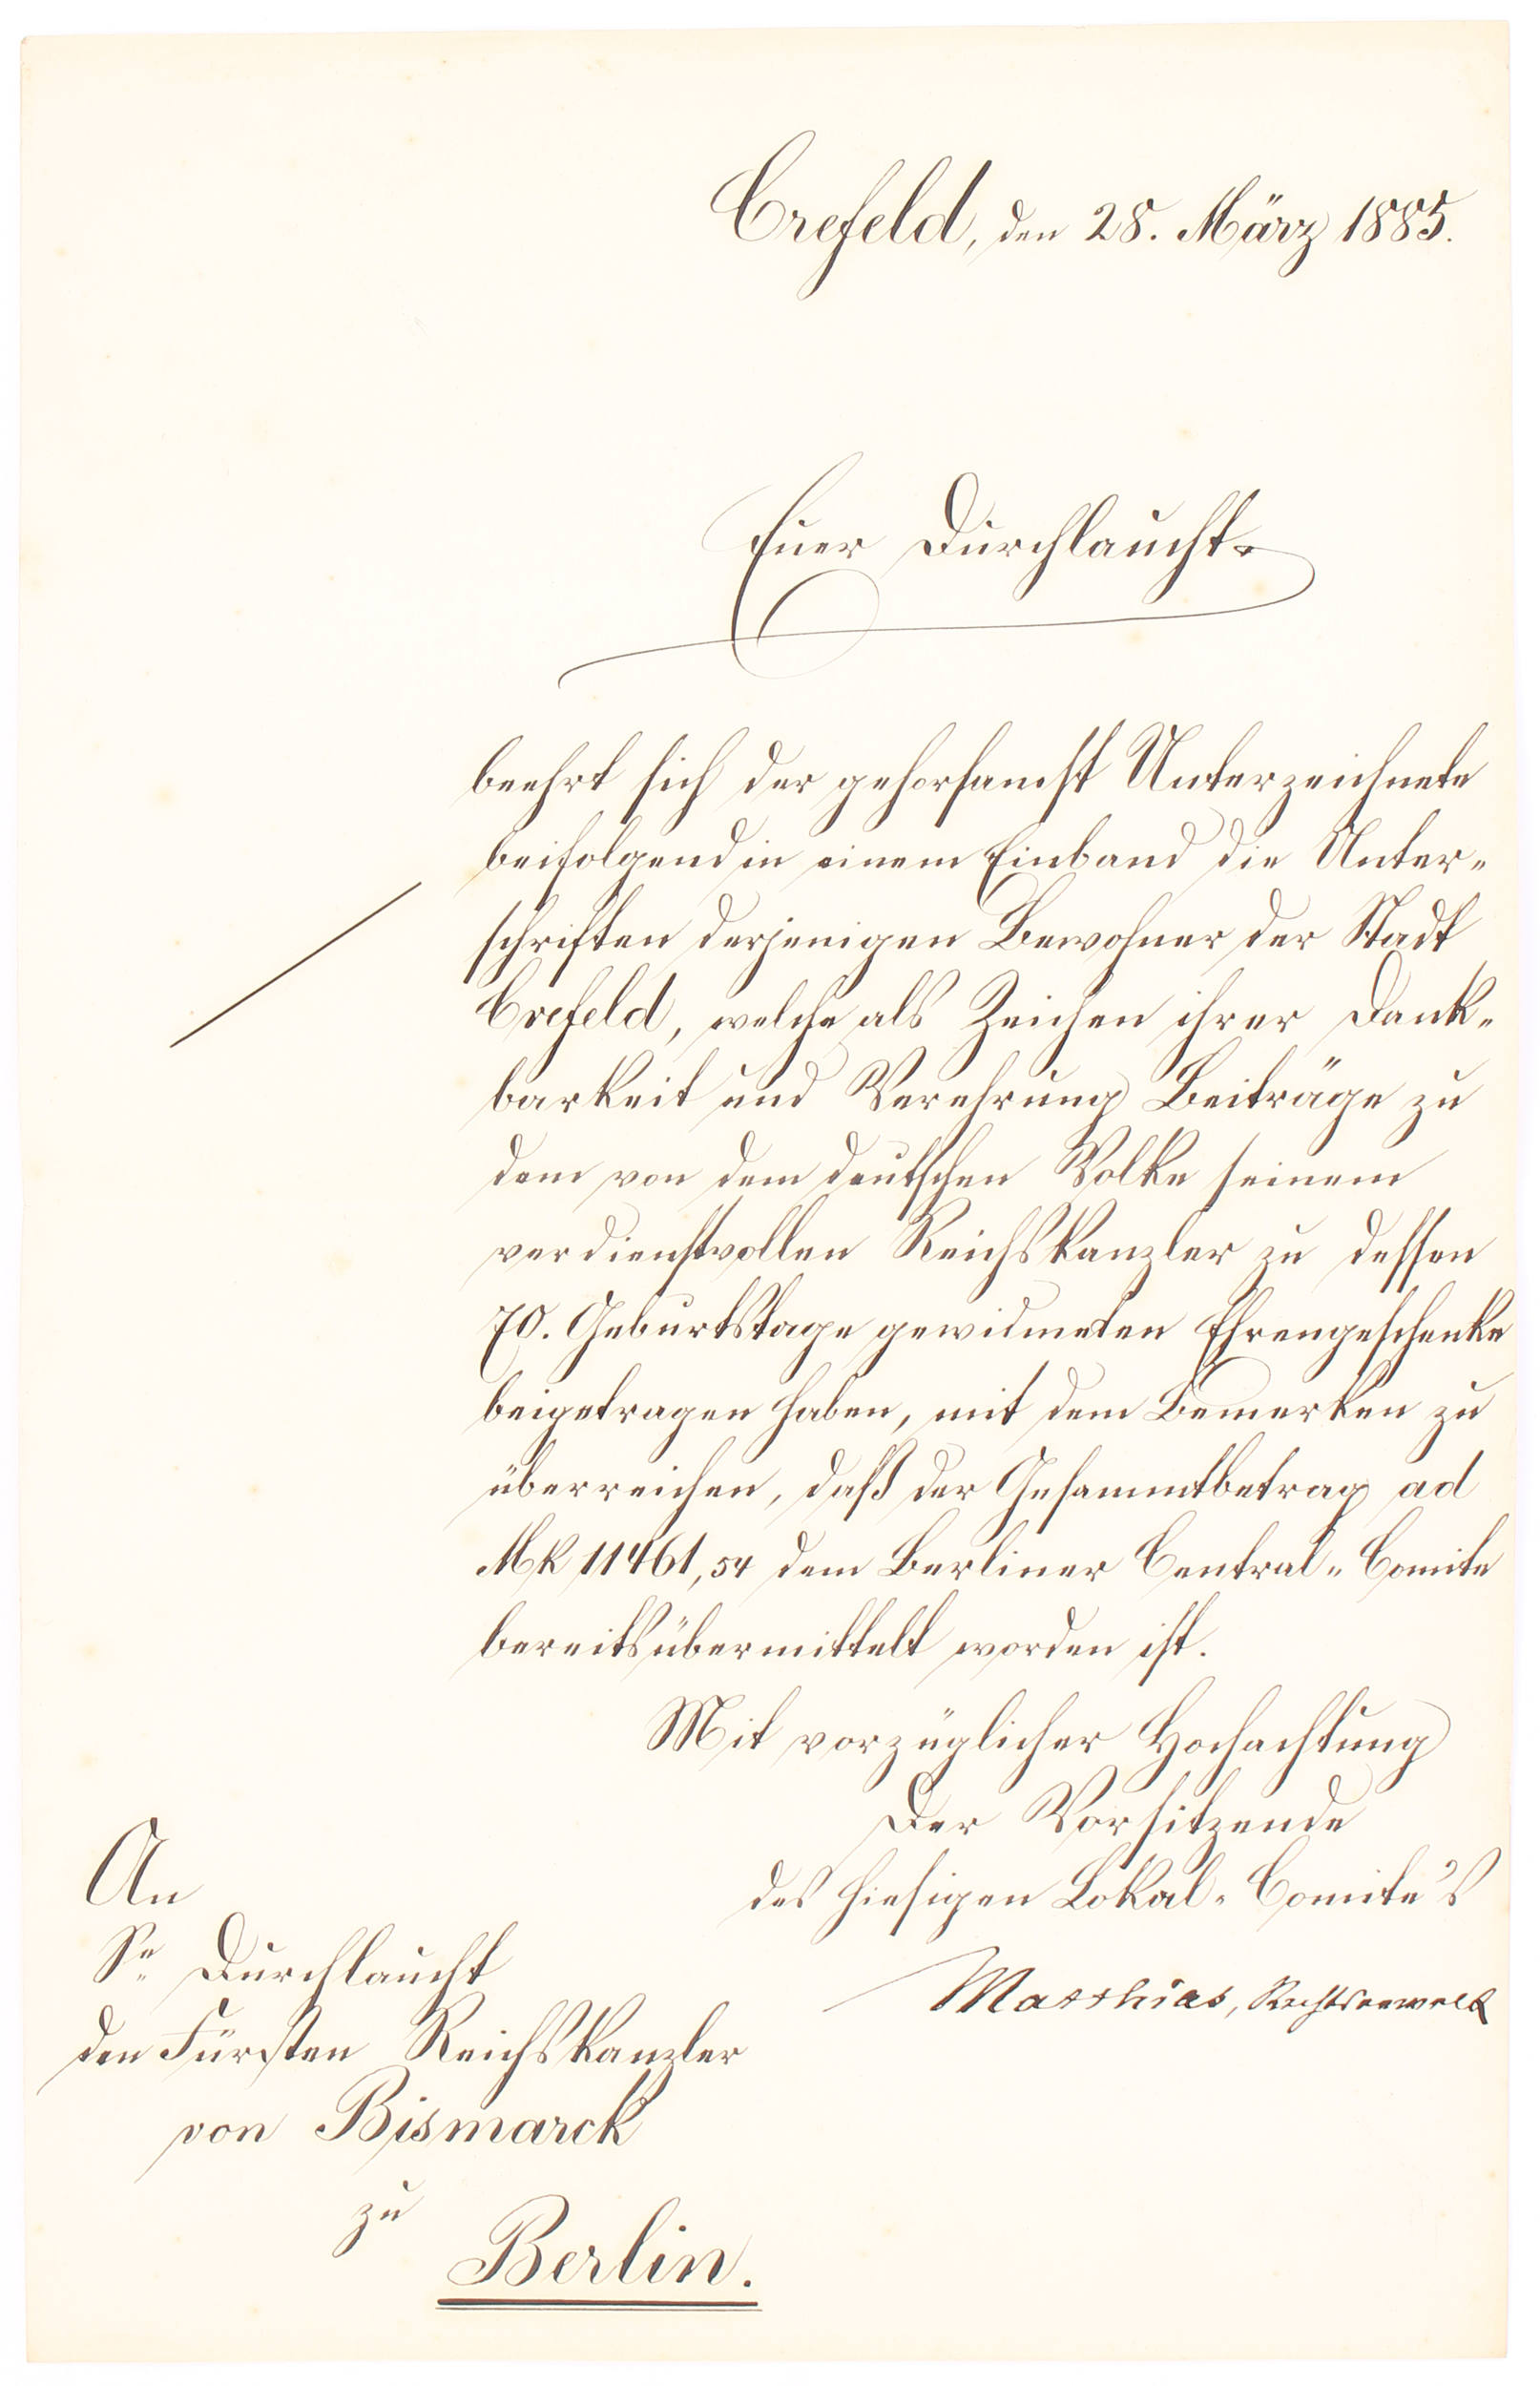 Crefeld, den 28. März 1885.
Euer Durchlaucht
beehrt sich der gehorsamst Unterzeichnete
beifolgend in einem Einband die Unter-
schriften derjenigen Bewohner der Stadt
Crefeld, welche als Zeichen ihrer Dank-
barkeit und Verehrung Beiträge zu
dem von dem deutschen Volke seinem
verdienstvollen Reichskanzler zu dessen
70. Geburtstage gewidmeten Ehrengeschenke
beigetragen haben, mit dem Bemerken zu
überreichen, daß der Gesammtbetrag ad
Mk 11461,54 dem Berliner Central-Comite
bereits übermittelt worden ist.
Mit vorzüglicher Hochachtung
Der Vorsitzende
des hiesigen Lokal-Comité's
Matthias, Rechtsanwalt
An
Se. Durchlaucht
den Fürsten Reichskanzler
von Bismarck
zu
Berlin.